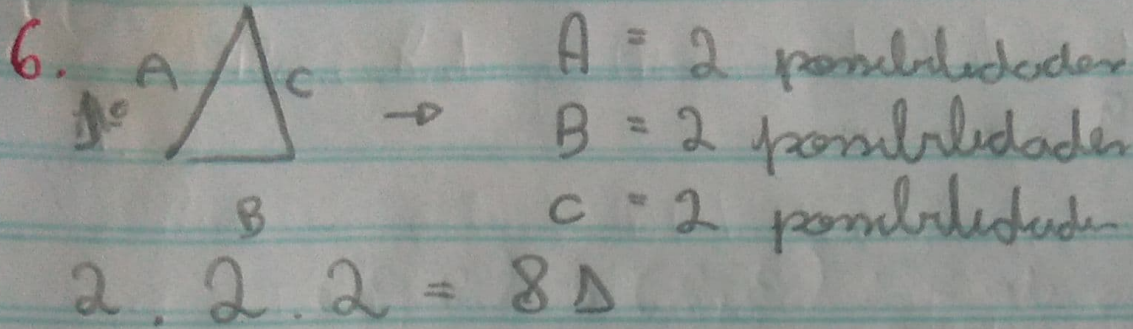 6. A C → A = 2 possibilidades
1º B = 2 possibilidades
B C = 2 possibilidades
2 . 2 . 2 = 8 Δ